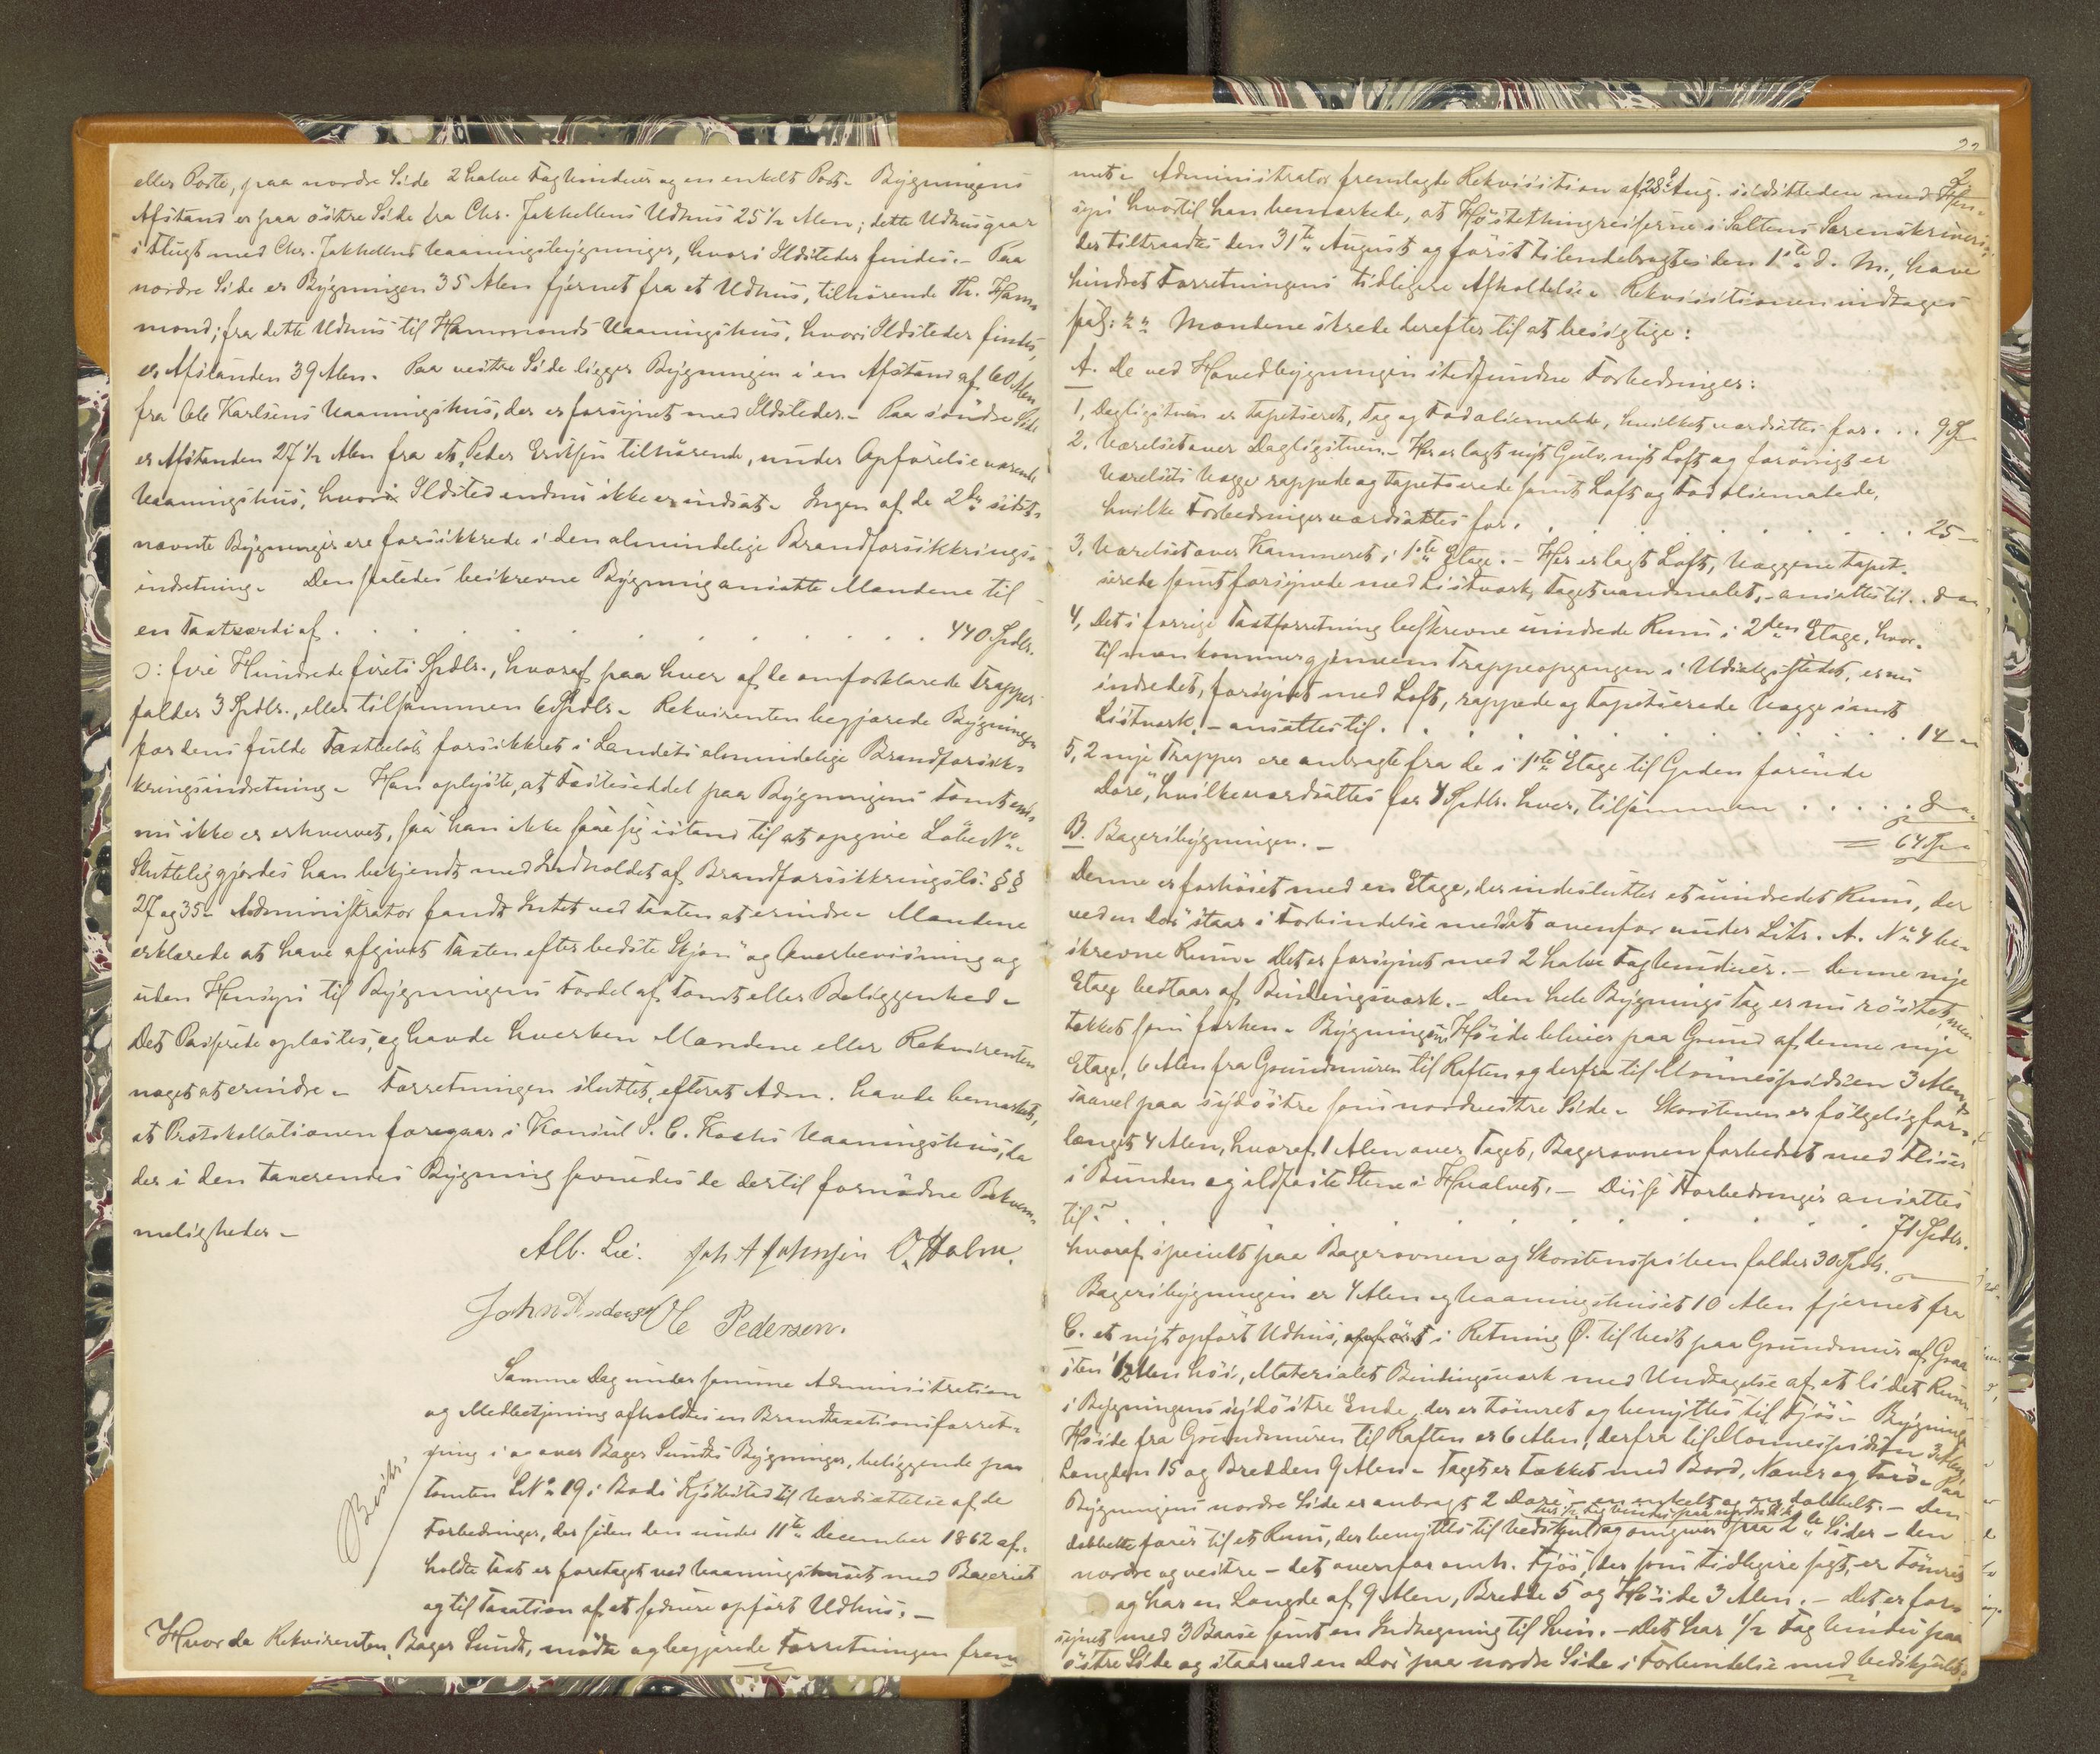 eller Porte, paa nordre Side 2 halve Fag Vinduer og en enkelt Port. Bygningens
Afstand er paa östre Side fra Chr. Jakhellens Udhus 25 1/2 Alen; dette Udhus gaar
i Flugt med Chr. Jakhellens Vaaningsbygninger, hvori Ildsteder findes. - Paa
nordre Side er Bygningen 35 Alen fjernet fra et Udhus, tilhörende Th. Ham-
mond; fra dette Udhus til Hammonds Vaaningshus, hvori Ildsteder findes,
er Afstanden 39 Alen. Paa vestre Side ligger Bygningen i en Afstand af 60 Alen
fra Ole Karlsens Vaaningshus, der er forsynet med Ildsteder. - Paa söndre Side
er Afstanden 27 1/2 Alen fra et, Peder Eriksen tilhörende, under Opförelse værende
Vaaningshus, hvori Ildsted endnu ikke er indsat. Ingen af de 2de sidst-
nævnte Bygninger ere forsikkrede i den almindelige Brandforsikkrings-
indretning. Den saaledes beskrevne Bygning ansatte Mændene til
en Taxtværdi af . . . . . . . . . . 440 Spdlr.
ɔ: fire Hundrede fireti Spdlr., hvoraf paa hver af de omforklarede Trapper
falder 3 Spdlr., eller tilsammen 6 Spdlr. Rekvirenten begjærede Bygningen
for dens fulde Taxtbeløb forsikkret i Landets almindelige Brandforsik-
kringsindretning. Han oplyste, at Fæsteseddel paa Bygningens Tomt end-
nu ikke er erhvervet, saa han ikke saae sig istand til at opgive Löbe No.
Slutteligt gjordes han bekjendt med Indholdet af Brandforsikkringsls. §§
27 og 35. Administrator fandt Intet ved Taxten at erindre. Mændene
erklærede at have afgivet Taxten efter bedste Skjön og Overbevisning og
uden Hensyn til Bygningens Fordel af Tomt eller Beliggenhed.
Det Passerede oplæstes, og havde hverken Mændene eller Rekvirenten
noget at erindre. Forretningen sluttet, efterat Adm. havde bemærket,
at Protokollationen foregaar i Konsul S. C. Kochs Vaaningshus, da
der i den taxerendes Bygning savnedes de dertil fornödne Bekvem-
meligheder.
Alb. Lie. Joh A Johnsen O. Holm.
John Anders Ole Pedersen.
Samme Dag under samme Administration
og Medbetjening afholdtes en Brandtaxationsforret-
ning i og over Bager Sundts Bygninger, beliggende paa
Tomten L No 19 i Bodö Kjöbsted til Værdsættelse af de
Forbedringer, der siden den under 11te December 1862 af-
holdte Taxt er foretaget ved Vaaningshuset med Bageriet
og til Taxation af et sednere opfört Udhus. -
Beskr.
Hvorda Rekvirenten, Bager Sundt, mödte og begjærede Forretningen frem-
met. Administrator fremlagde Rekvisition af 28 Aug. sidstleden med Hen-
syn hvortil han bemærkede, at Höstethingreiserne i Saltens Sorenskriveri,
der tiltraadtes den 31te August og först tilendebragtes den 1ste d. M., have
hindret Forretningens tidligere Afholdelse. Rekvisitionen indtages
saal: " " Mændene skrede derefter til at besigtige:
A. De ved Hovedbygningen stedfundne Forbedringer:
1, Dagligstuen er tapetseret, Tag og Fod oliemalede, hvilket værdsættes for . . . 9 Sp
2, Værelset over Dagligstuen. - Her er lagt nyt Gulv, nyt Loft og forövrigt er
Værelsets Vægge rappede og tapetserede samt Loft og Fod oliemalede,
hvilke Forbedringer værdsættes for . . . . . . . . . 25 -
3, Værelset over Kammeret i 1ste Etage. - Her er lagt Loft, Væggene tapet-
serede samt forsynede med Listværk, Taget vandmalet, - ansættes til . . 8 -
4, Det i forrige Taxtforretning beskrevne uindrede Rum i 2den Etage, hvor-
til man kommer gjennem Trappeopgangen i Udsalgsstedet, er nu
indredet, forsynet med Loft, rappede og tapetserede Vægge samt
Listværk, - ansættes til . . . . . . . . . . 14 -
5, 2 nye Trapper ere anbragte fra de i 1ste Etage til Gaden förende
Döre, hvilke værdsættes for 4 Spdlr. hver, tilsammen . . . . . 8 -
= 64 Sp
B. Bageribygningen. -
Denne er forhöiet med en Etage, der indeslutter et uindredet Rum, der
ved en Dör staar i Forbindelse med det ovenfor under Litr. A. No 4 be-
skrevne Rum. Det er forsynet med 2 halve Fag Vinduer. - Denne nye
Etage bestaar af Bindingsværk. - Den hele Bygnings Tag er nu röstet, men
tækket som forhen. Bygningens Höide bliver paa Grund af denne nye
Etage, 6 Alen fra Grundmuren til Raften og derfra til Mönnespidsen 3 Alen
saavel paa sydöstre som nordvestre Side. Skorstenen er fölgelig for-
længet 4 Alen, hvoraf 1 Alen over Taget, Bagerovnen forbedret med Fliser
i Bunden og ildfaste Stene i Hvælvet. - Disse Forbedringer ansættes
til . . . . . . . . . . . 71 Spdlr.
hvoraf specielt paa Bagerovnen og Skorstenspiben falder 30 Spdlr.
Bageribygningen er 4 Alen og Vaaningshuset 10 Alen fjernet fra
C. et nyt opfört Udhus, opfört i Retning Ö. til Vest paa Grundmur af Graa-
sten 1/2 Alen höi, Materialet Bindingsværk med Undtagelse af et lidet Rum
i Bygningens sydöstre Ende, der er tömret og benyttes til Fjös. Bygningens
Höide fra Grundmuren til Raften er 6 Alen, derfra til Mönnespidsen 3 Alen,
Længden 15 og Bredden 9 Alen. Taget er tækket med Bord, Næver og Torv. Paa
Bygningens nordre Side er anbragt 2 Döre, - en enkelt og en dobbelt. - Den
dobbelte förer til et Rum, der benyttes til Vedskjul og omgiver paa 2de Sider - den
nordre og vestre - det ovenfor omh. Fjös, der som tidligere sagt, er tömret
og har en Længde af 9 Alen, Bredde 5 og Höide 3 Alen. - Det er for-
synet med 3 Baase samt en Indhegning til Svin. - Det har 1/2 Fag Vindu paa
östre Side og staar ved en Dör paa nordre Side i Forbindelse med Vedskjulet.